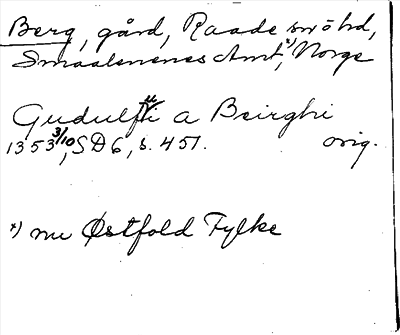 Berg, gård, Raade snöhd,
Smaalenenes Amt,*) Norge
Gudulffi a Beirghi
1353 3/10, SD 6, s. 451. orig.
*) nu Østfold Fylke